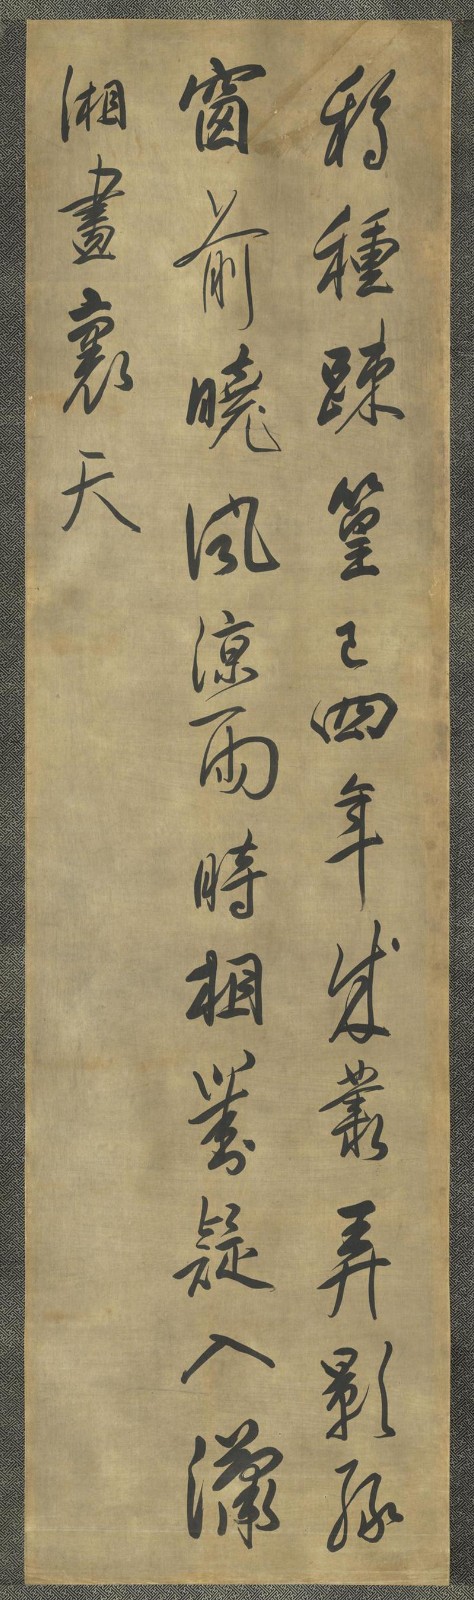 移種踈篁已四年成叢弄影緑
窗前曉風涼雨時相對疑入瀟
湘畫裏天